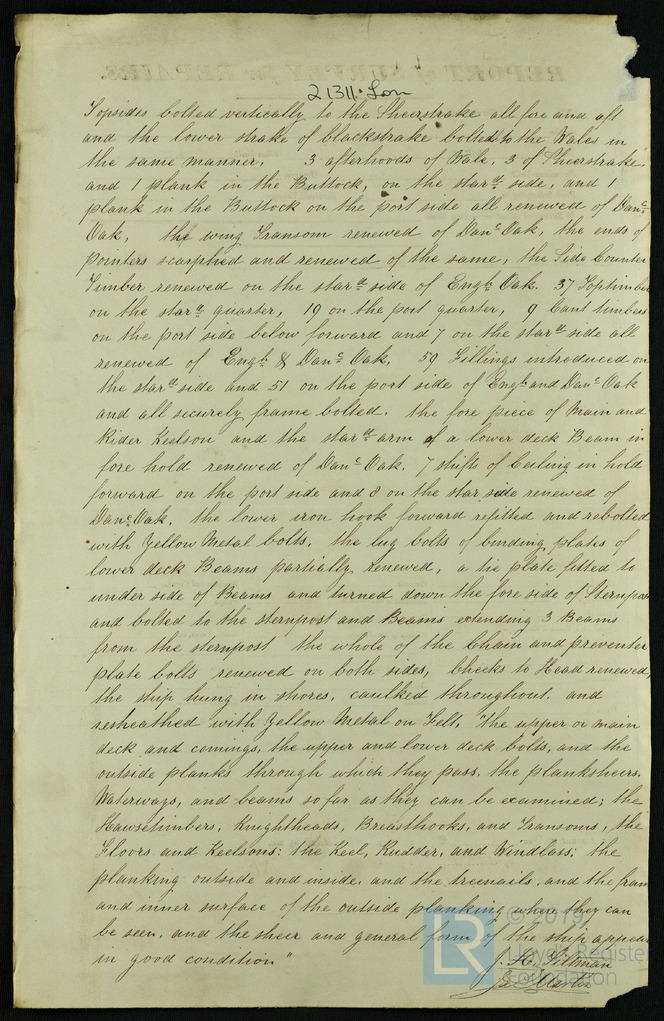 REPORT of SURVEY for REPAIRS.
21311. Lon
Topsides bolted vertically to the Sheerstrake all fore and aft
and the lower strake of blackstrake bolted to the Wales in
the same manner, 3 afterhoods of Wale, 3 of Sheerstrake
and 1 plank in the Buttock, on the star^d side, and 1
plank in the Buttock on the port side all renewed of Dan^c
Oak, the wing Transom renewed of Dan^c Oak, the ends of
pointers scarphed and renewed of the same, the Side Counter
Timber renewed on the star^d side of Eng^h Oak. 37 Toptimber
on the star^d quarter, 19 on the port quarter, 9 Cant timbers
on the port side below forward and 7 on the star^d side all
renewed of Eng^h & Dan^c Oak, 59 Fillings introduced on
the star^d side and 51 on the port side of Eng^h and Dan^c Oak
and all securely frame bolted. the fore piece of Main and
Rider Keelson and the star^d arm of a lower deck Beam in
fore hold renewed of Dan^c Oak. 7 shifts of Ceiling in hold
forward on the port side and 8 on the star side renewed of
Dan^c Oak. the lower iron hook forward refitted and rebolted
with Yellow Metal bolts. the lug bolts of binding plates of
lower deck Beams partially renewed, a tie plate fitted to
under side of Beams and turned down the fore side of Sternpost
and bolted to the sternpost and Beams extending 3 Beams
from the sternpost the whole of the Chain and preventer
plate bolts renewed on both sides, Cheeks to Head renewed,
the ship hung in shores, caulked throughout. and
resheathed with Yellow Metal on Felt, "the upper or main
deck and comings, the upper and lower deck bolts, and the
outside planks through which they pass. the planksheers.
Waterways, and beams so far as they can be examined; the
Hawsetimbers, Knightheads, Breasthooks, and Transoms, the
Floors and Keelsons: the Keel, Rudder, and Windlass: the
planking outside and inside. and the treenails. and the fram
and inner surface of the outside planking where they can
be seen. and the sheer and general form of the ship appear
in good condition"
J. H. Pittman
Ja^s Martin
LR
© 2019
Lloyd's Register
Foundation